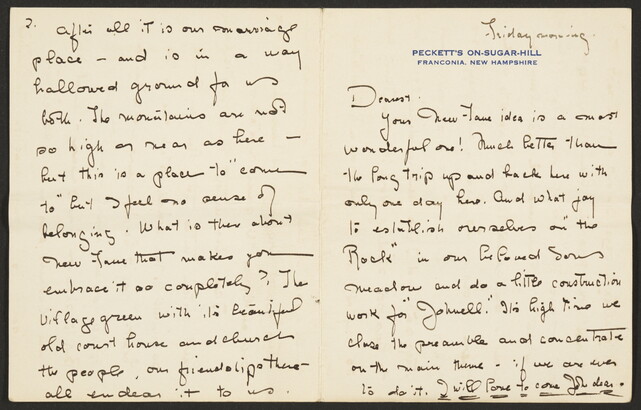 Friday morning.
PECKETT'S ON-SUGAR-HILL
FRANCONIA, NEW HAMPSHIRE
Dearest.
Your New-fane idea is a most
wonderful one! Much better than
the long trip up and back here with
only one day here. And what joy
to establish ourselves on "the
Rock" in our beloved
meadow and do a little construction
work for "Johnell." It's high time we
close the preamble and concentrate
on the main theme - if we are ever
to do it. I will love to come John dear.
2.
After all it is our marriage
place - and is in a way
hallowed ground for us
both. The mountains are not
so high or near as here -
but this is a place to "come
to" but I feel no sense of
belonging. What is there about
New-fane that makes you
embrace it so completely? The
village green with its beautiful
old court house and church
the people, our friendships there -
all endear it to us.